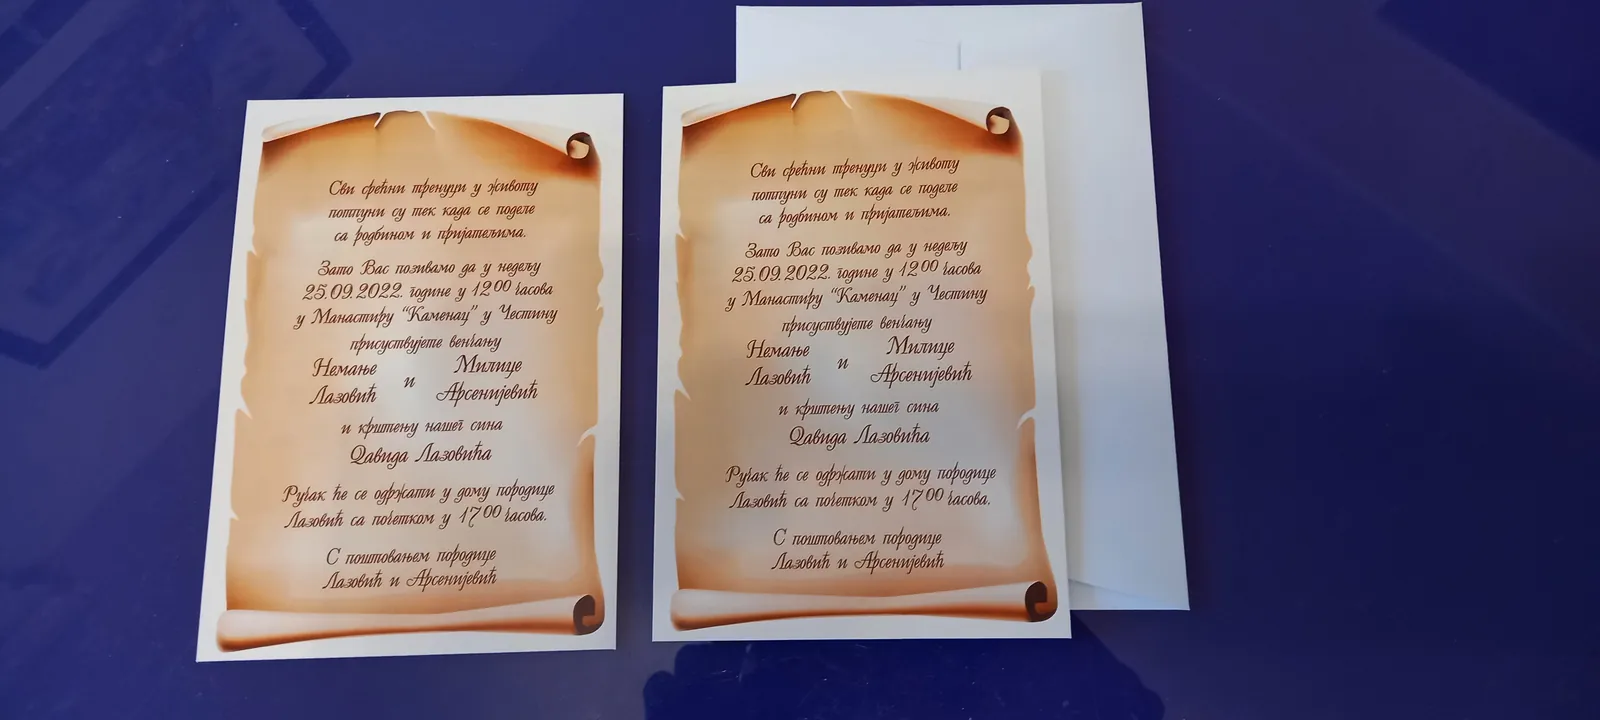 Сви срећни тренуци у животу
потпуни су тек када се поделе
са родбином и пријатељима.
Зато Вас позивамо да у недељу
25.09.2022. године у 12⁰⁰ часова
у Манастиру “Каменац” у Честину
присуствујете венчању
Немање Милице
и
Лазовић Арсенијевић
и крштењу нашег сина
Давида Лазовића
Ручак ће се одржати у дому породице
Лазовић са почетком у 17⁰⁰ часова.
С поштовањем породице
Лазовић и Арсенијевић
Сви срећни тренуци у животу
потпуни су тек када се поделе
са родбином и пријатељима.
Зато Вас позивамо да у недељу
25.09.2022. године у 12⁰⁰ часова
у Манастиру “Каменац” у Честину
присуствујете венчању
Немање Милице
и
Лазовић Арсенијевић
и крштењу нашег сина
Давида Лазовића
Ручак ће се одржати у дому породице
Лазовић са почетком у 17⁰⁰ часова.
С поштовањем породице
Лазовић и Арсенијевић